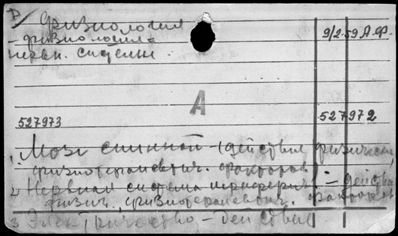 Физиология 9/2.59 А.Ф.
- физиология=
нервн. системы.
А
527973 527972
1, Мозг спинной - (действия физически,
физиотерапевтич. факторов
2, Нервная система перифери - действ
физич. физиотерапевтич. факторов
3 Электричество - действия